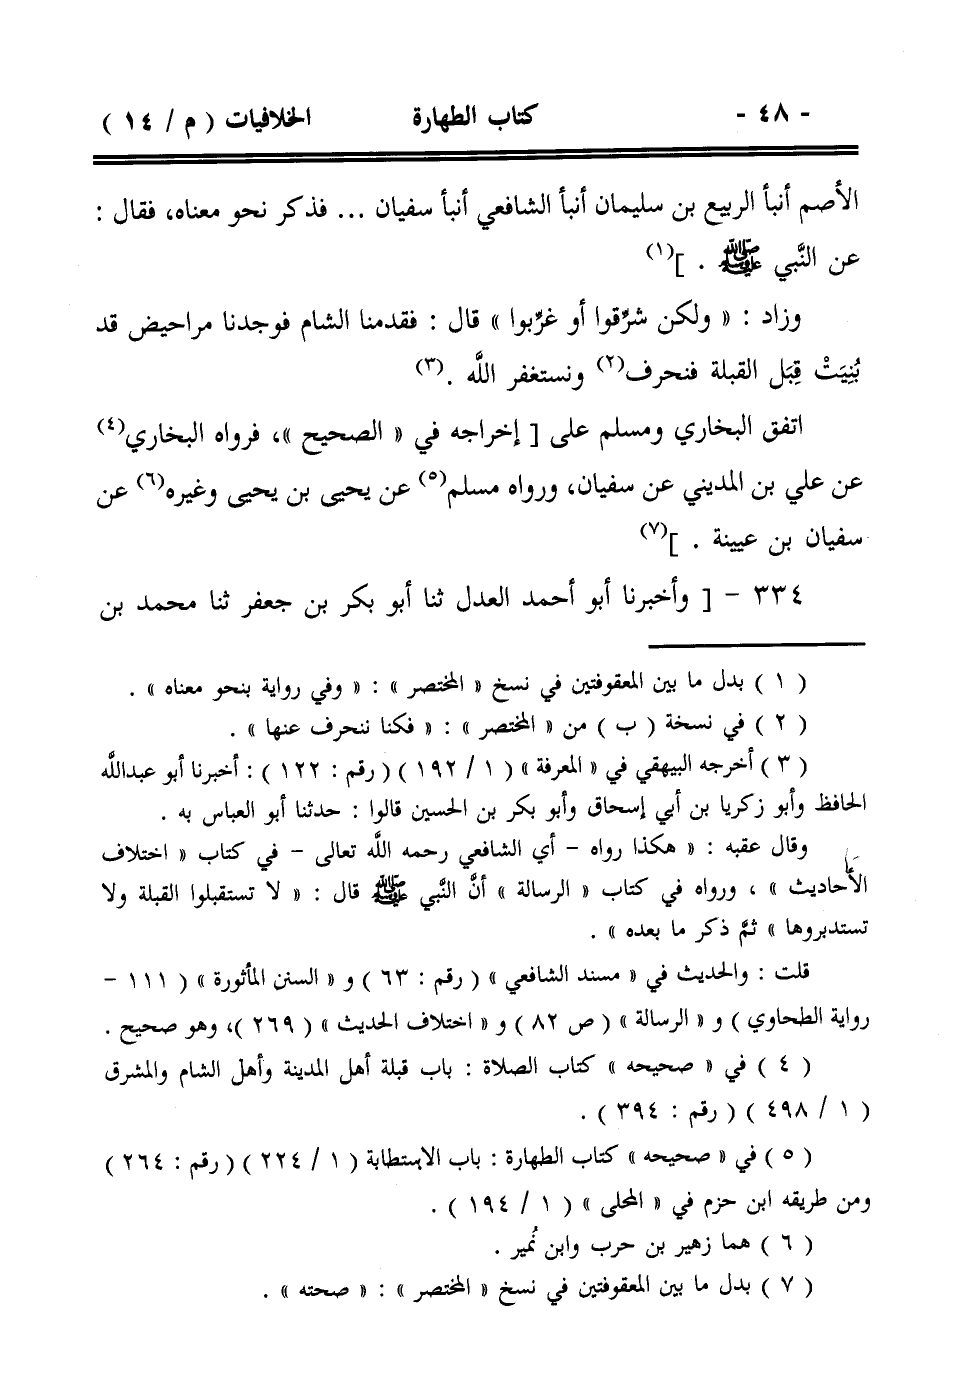 - ٤٨ - كتاب الطهارة الخلافيات ( م / ١٤ )
الأصم أنبأ الربيع بن سليمان أنبأ الشافعي أنبأ سفيان ... فذكر نحو معناه، فقال :
عن النَّبي ﷺ . ](١)
وزاد : « ولكن شرِّقوا أو غرِّبوا » قال : فقدمنا الشام فوجدنا مراحيض قد
بُنِيَتْ قِبَل القبلة فننحرف(٢) ونستغفر اللَّه .(٣)
اتفق البخاري ومسلم على [ إخراجه في « الصحيح »، فرواه البخاري(٤)
عن علي بن المديني عن سفيان، ورواه مسلم(٥) عن يحيى بن يحيى وغيره(٦) عن
سفيان بن عيينة . ](٧)
٣٣٤ - [ وأخبرنا أبو أحمد العدل ثنا أبو بكر بن جعفر ثنا محمد بن
( ١ ) بدل ما بين المعقوفتين في نسخ « المختصر » : « وفي رواية بنحو معناه » .
( ٢ ) في نسخة ( ب ) من « المختصر » : « فكنا ننحرف عنها » .
( ٣ ) أخرجه البيهقي في « المعرفة » ( ١ / ١٩٢ ) ( رقم : ١٢٢ ) : أخبرنا أبو عبداللَّه
الحافظ وأبو زكريا بن أبي إسحاق وأبو بكر بن الحسين قالوا : حدثنا أبو العباس به .
وقال عقبه : « هكذا رواه - أي الشافعي رحمه اللَّه تعالى - في كتاب « اختلاف
الأحاديث » ، ورواه في كتاب « الرسالة » أنَّ النَّبي ﷺ قال : « لا تستقبلوا القبلة ولا
تستدبروها » ثمَّ ذكر ما بعده » .
قلت : والحديث في « مسند الشافعي » ( رقم : ٦٣ ) و « السنن المأثورة » ( ١١١ -
رواية الطحاوي ) و « الرسالة » ( ص ٨٢ ) و « اختلاف الحديث » ( ٢٦٩ )، وهو صحيح .
( ٤ ) في « صحيحه » كتاب الصلاة : باب قبلة أهل المدينة وأهل الشام والمشرق
( ١ / ٤٩٨ ) ( رقم : ٣٩٤ ) .
( ٥ ) في « صحيحه » كتاب الطهارة : باب الاستطابة ( ١ / ٢٢٤ ) ( رقم : ٢٦٤ )
ومن طريقه ابن حزم في « المحلى » ( ١ / ١٩٤ ) .
( ٦ ) هما زهير بن حرب وابن نُمير .
( ٧ ) بدل ما بين المعقوفتين في نسخ « المختصر » : « صحته » .